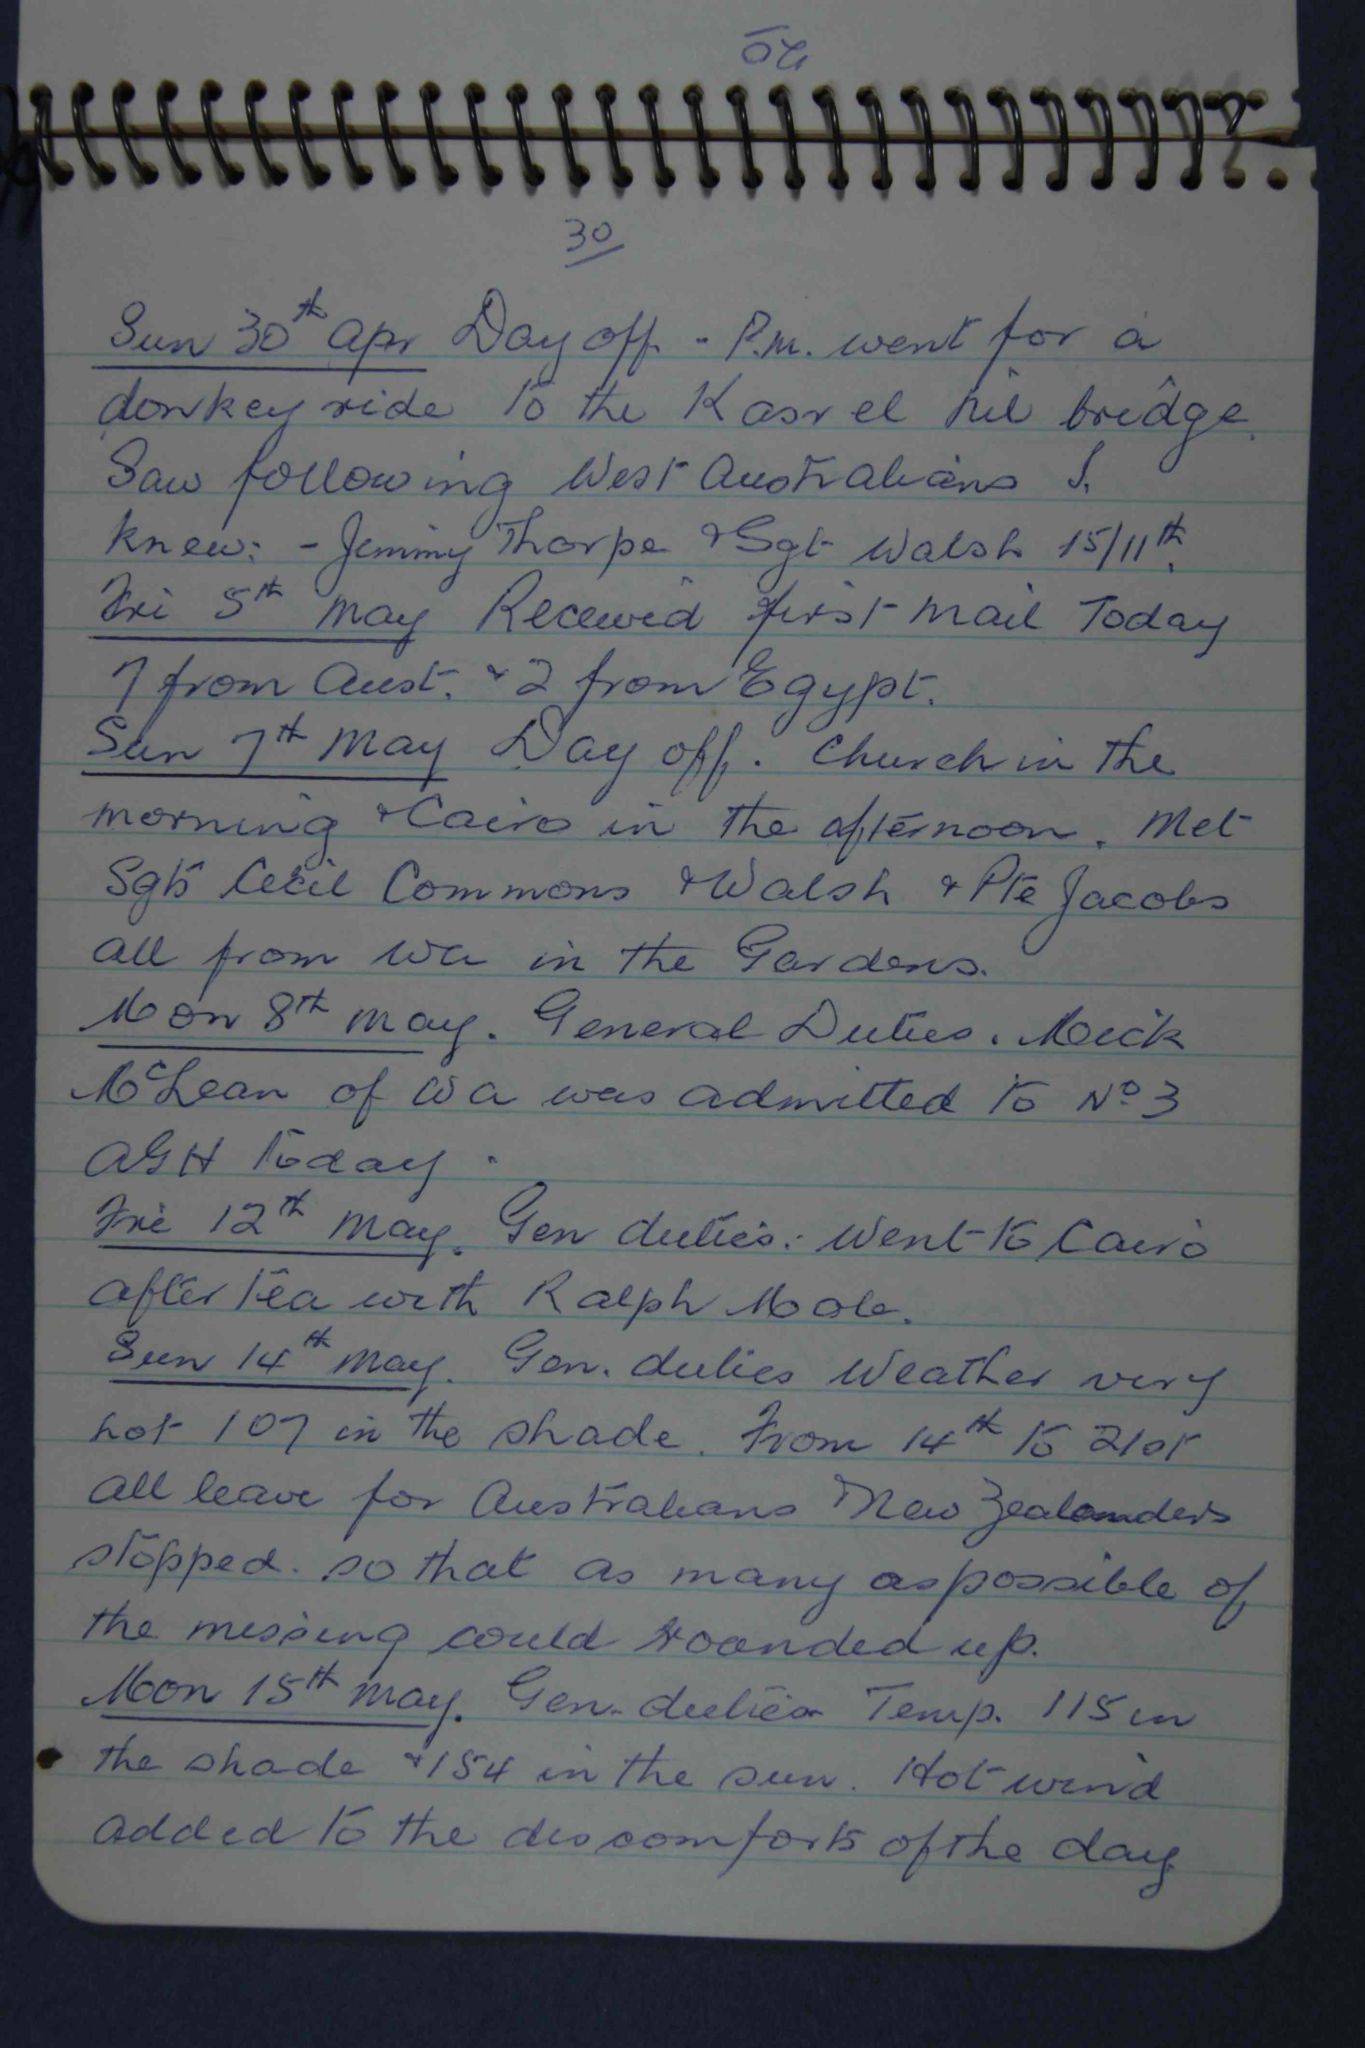 30
Sun 30th Apr Day off. - P.m. went for a
donkey ride to the Kasr el nil bridge.
Saw following West Australians I.
knew: - Jimmy Thorpe & Sgt Walsh 15/11th.
Fri 5th May Received first mail Today
7 from Aust. & 2 from Egypt.
Sun 7th May Day off. Church in the
morning & Cairo in the afternoon. Met
Sgts Cecil Commons & Walsh & Pte Jacobs
all from WA in the Gardens.
Mon 8th May. General Duties. Mick
McLean of WA was admitted to No 3
AGH today.
Fri 12th May. Gen duties. Went to Cairo
after tea with Ralph Mole.
Sun 14th May. Gen. duties Weather very
hot 107 in the shade. From 14th to 21st
all leave for Australians & New Zealanders
stopped. so that as many as possible of
the missing could rounded up.
Mon 15th May. Gen. duties Temp. 115 in
the shade & 154 in the sun. Hot wind
added to the discomforts of the day